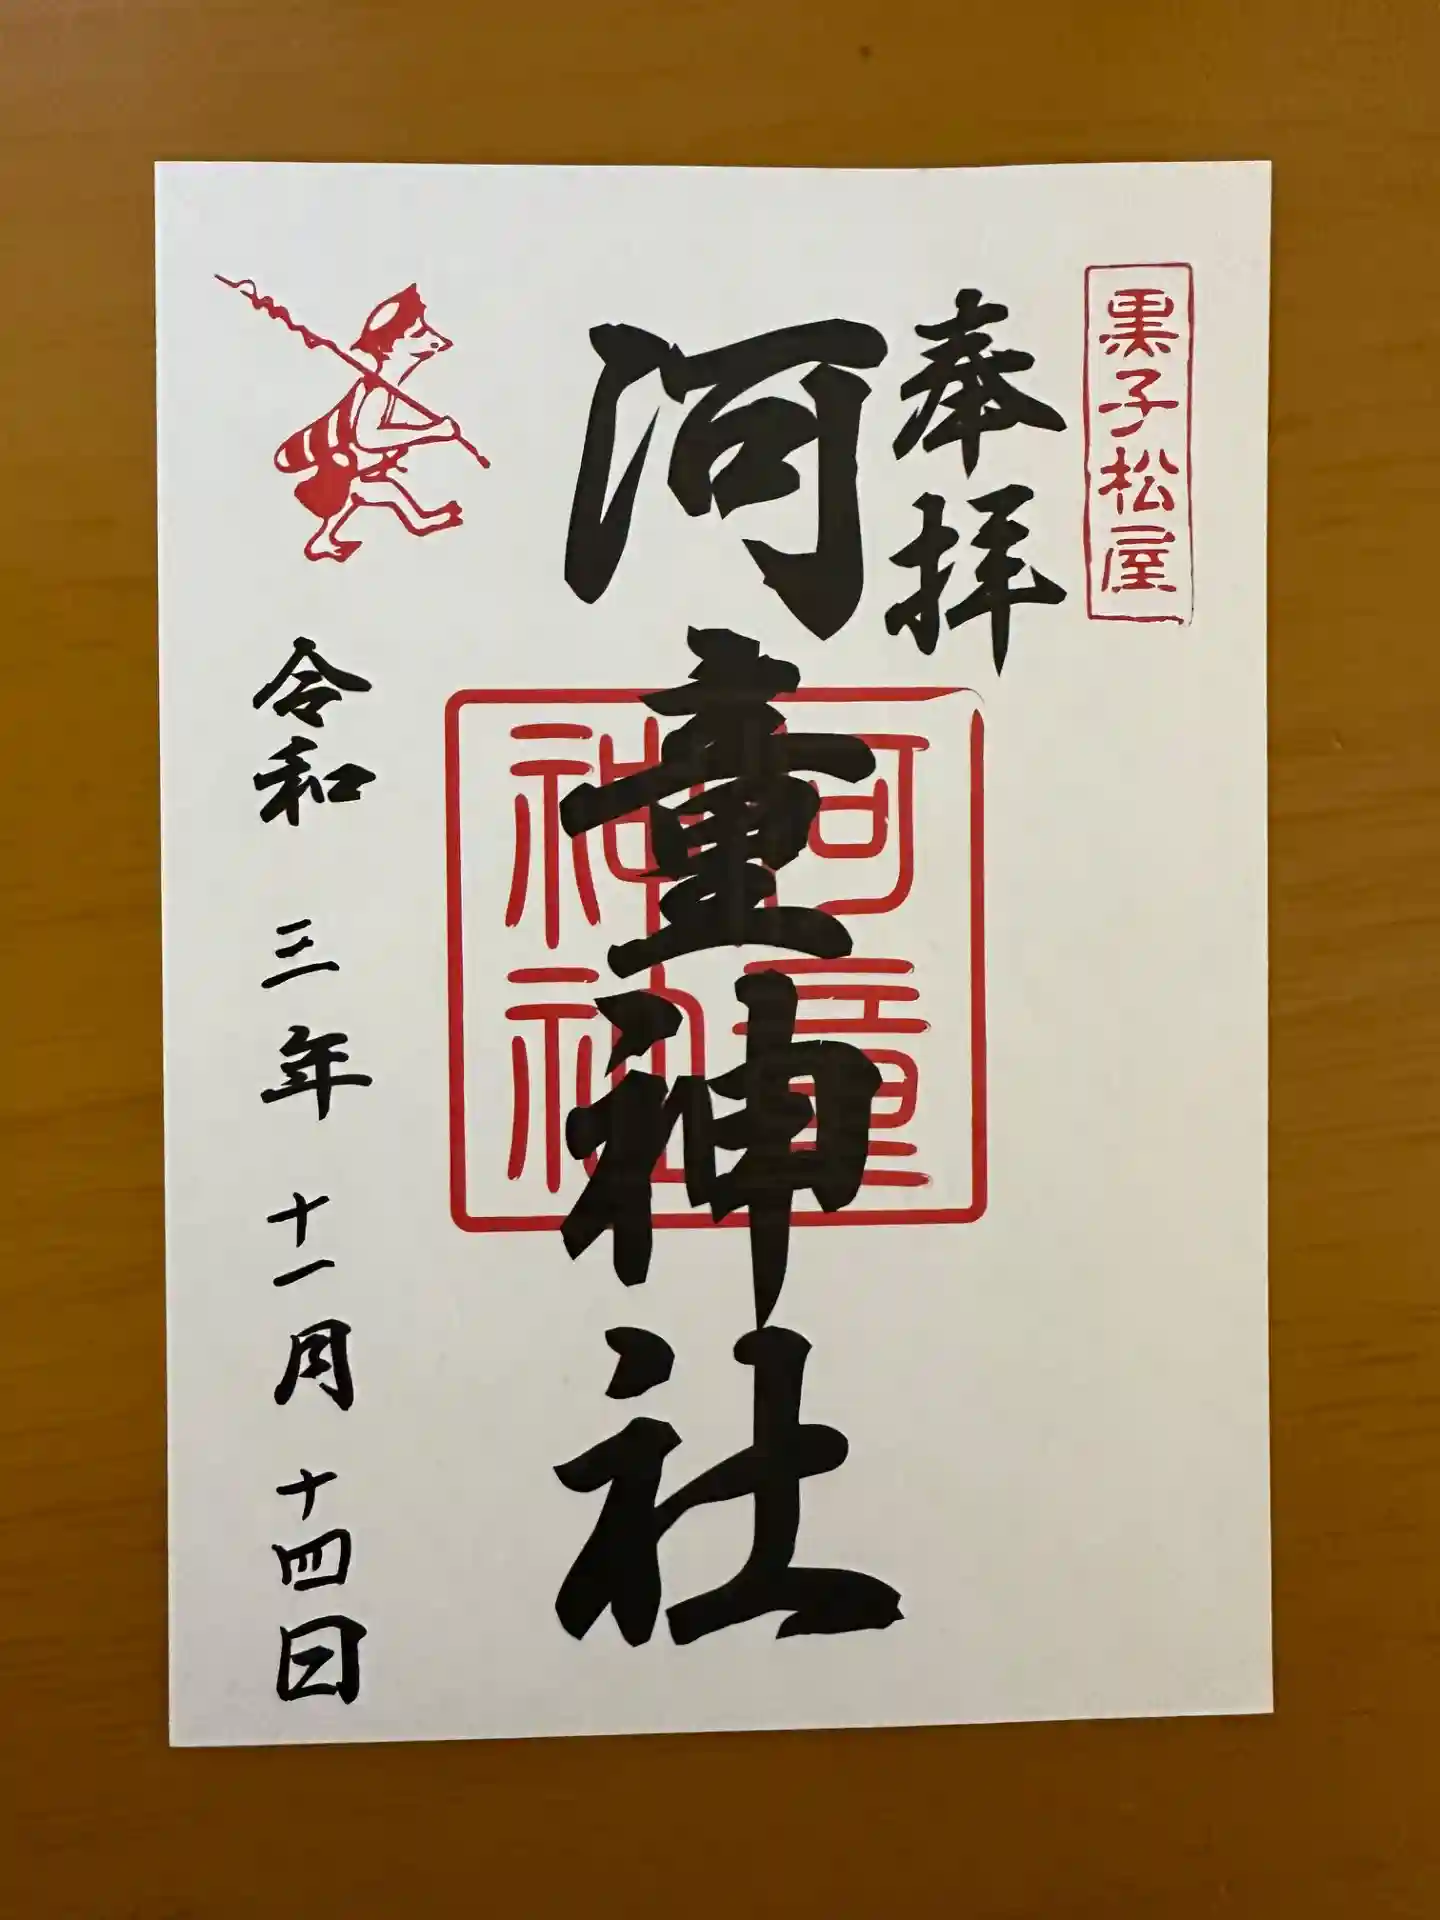 黒子松屋
奉拝
河童神社
河童
神社
令和三年十一月十四日